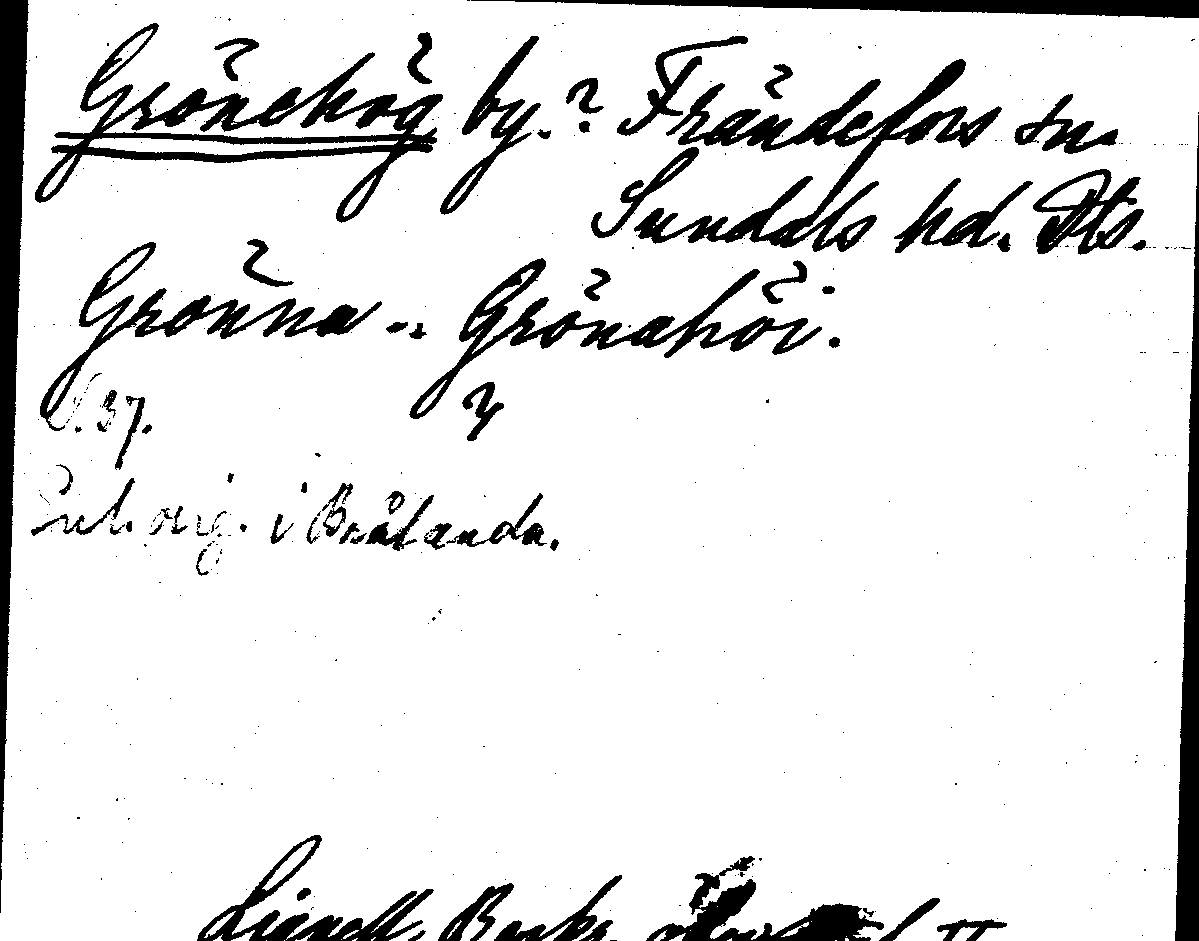 Grönehög by.? Frändefors sn.
Sundals hd. Dls.
Grönna -.. Grönahöi.
S. 37.
Enl. orig. i Brålanda.
Lignell, Beskr.
II